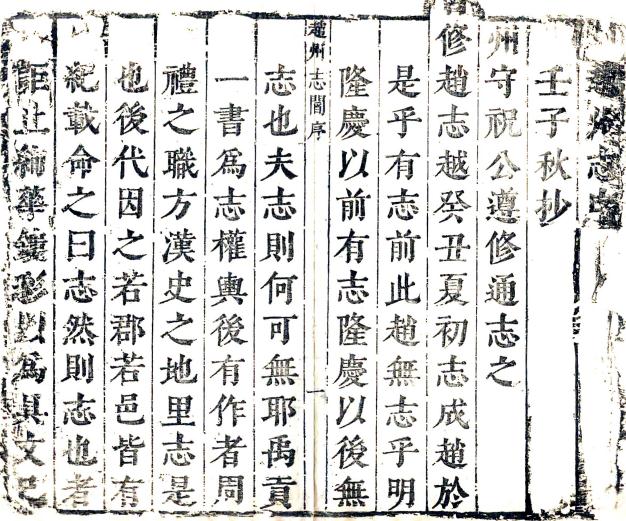 趙州志
壬子秋抄
州守祝公遵修通志之
修趙志越癸丑夏初志成趙於
是乎有志前此趙無志乎明
隆慶以前有志隆慶以後無
趙州志 序 一
志也夫志則何可無耶禹貢
一書爲志權輿後有作者周
禮之職方漢史之地里志是
也後代因之若郡若邑皆有
紀載命之曰志然則志也者
詎止絺華鏤彩以爲具文已